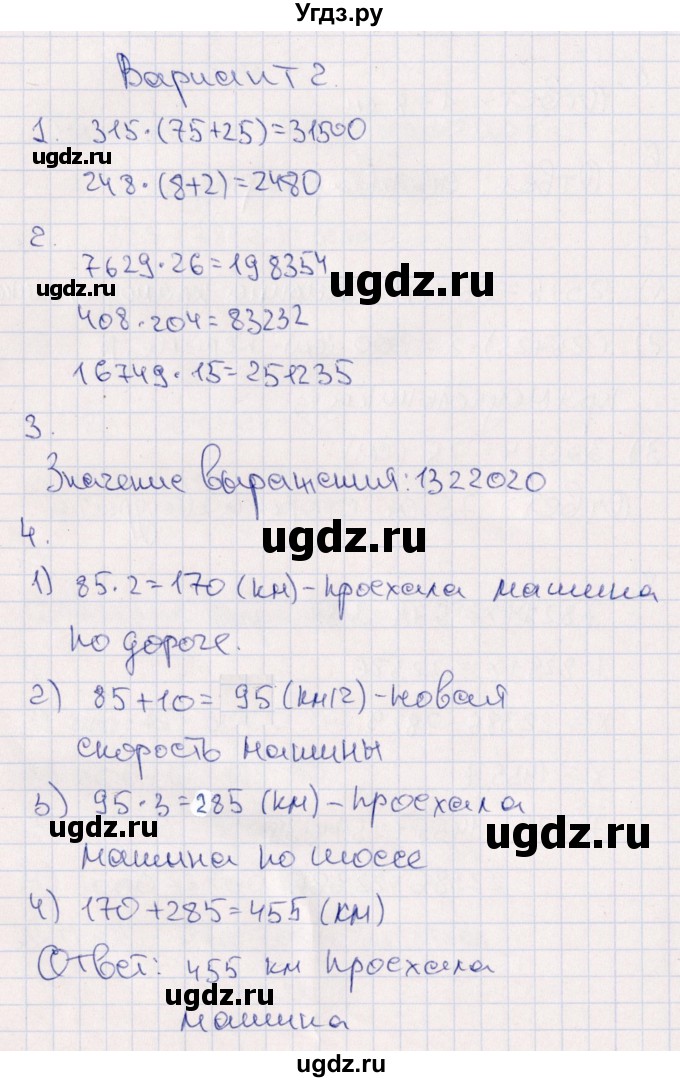 Угдз.ру
Вариант 2.
1. 315·(75+25)=31500
ugdz.ru
248·(8+2)=2480
2.
7629·26=198354
ugdz.ru
ugdz.ru
408·204=83232
16749·15=251235
3.
Значение выражения: 1322020
ugdz.ru
4.
1) 85·2=170 (км)-проехала машина
по дороге.
2) 85+10= 95 (км/ч)-новая
скорость машины
3) 95·3=285 (км)-проехала
ugdz.ru
ugdz.ru
машина по шоссе
4) 170+285=455 (км)
Ответ: 455 км проехала
ugdz.ru
машина
ugdz.ru